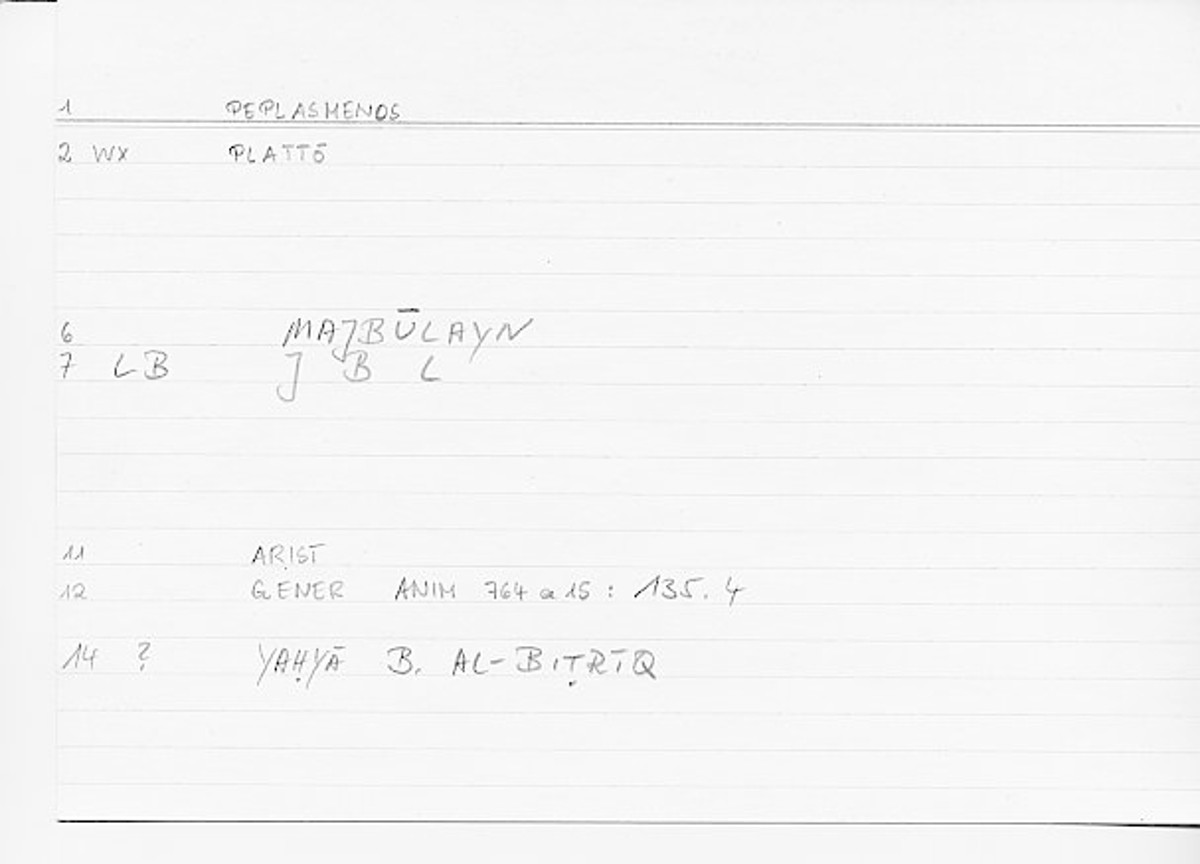 1 PEPLASMENOS
2 WX PLATTŌ
6 MAJBŪLAYN
7 LB J B L
11 ARIST
12 GENER ANIM 764 a 15 : 135. 4
14 ? YAḤYĀ B. AL-BIṬRĪQ